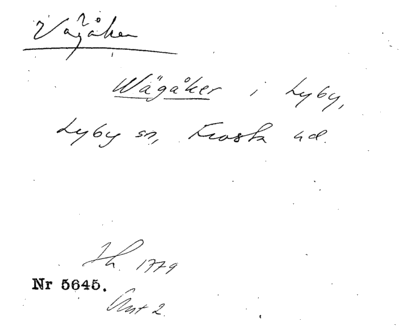 Vägåker
Wägåker i Lyby,
Lyby sn, Frosta hd.
Jh. 1779
Nr 5645.
Ant 2.